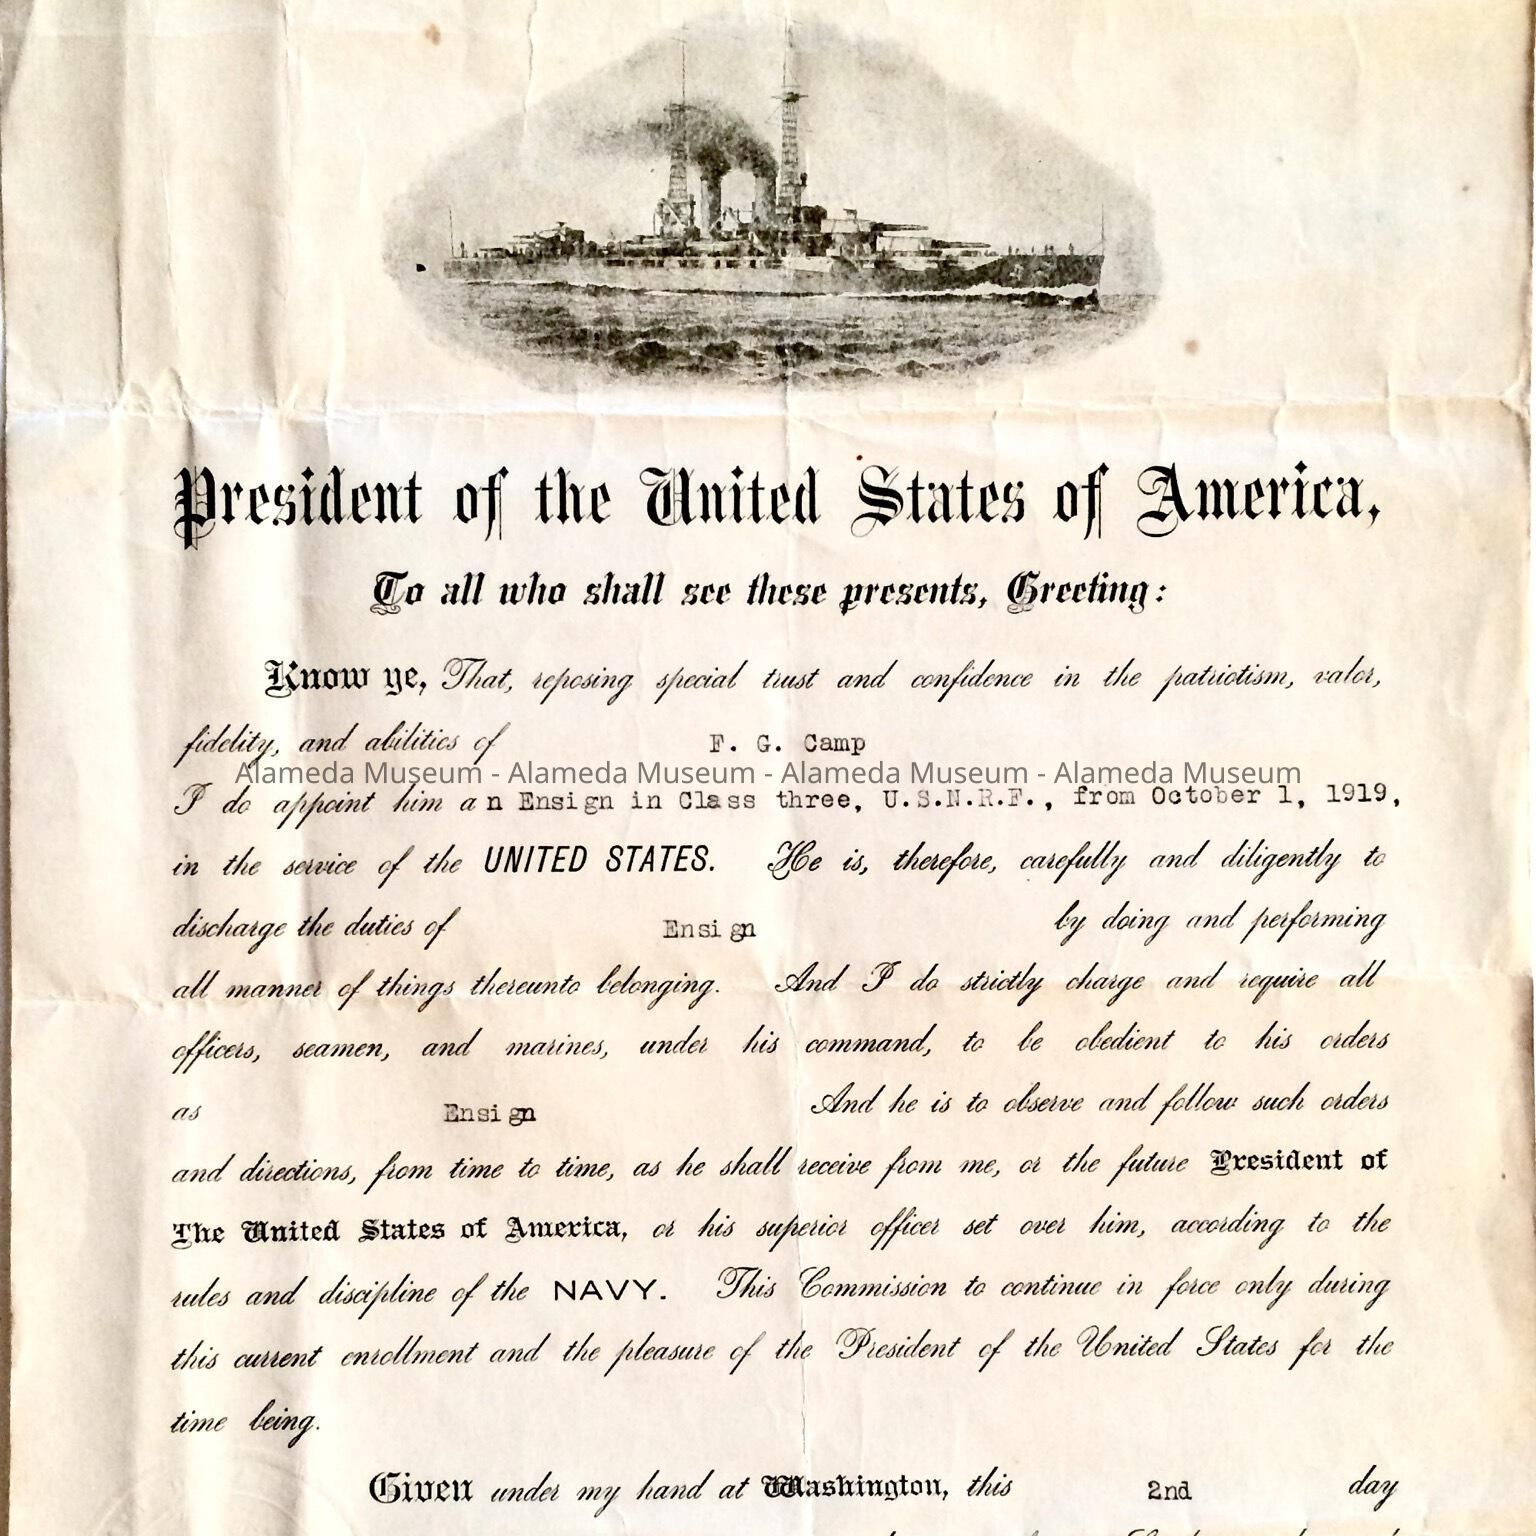 President of the United States of America,
To all who shall see these presents, Greeting:
Know ye, That, reposing special trust and confidence in the patriotism, valor,
fidelity, and abilities of F. G. Camp
Alameda Museum - Alameda Museum - Alameda Museum - Alameda Museum
I do appoint him an Ensign in Class three, U.S.N.R.F., from October 1, 1919,
in the service of the UNITED STATES. He is, therefore, carefully and diligently to
discharge the duties of Ensign by doing and performing
all manner of things thereunto belonging. And I do strictly charge and require all
officers, seamen, and marines, under his command, to be obedient to his orders
as Ensign And he is to observe and follow such orders
and directions, from time to time, as he shall receive from me, or the future President of
The United States of America, or his superior officer set over him, according to the
rules and discipline of the NAVY. This Commission to continue in force only during
this current enrollment and the pleasure of the President of the United States for the
time being.
Given under my hand at Washington, this 2nd day